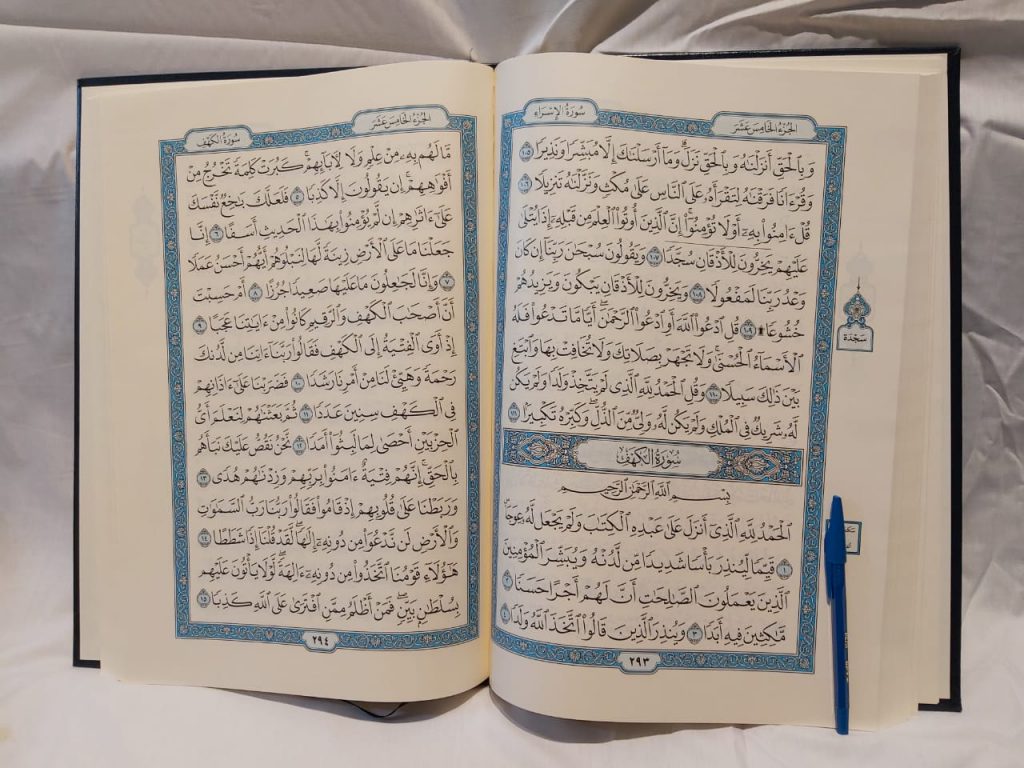 سُورَةُ الإِسْرَاءِ
الجُزْءُ الخَامِسَ عَشَرَ
وَبِالْحَقِّ أَنزَلْنَٰهُ وَبِالْحَقِّ نَزَلَ ۗ وَمَآ أَرْسَلْنَٰكَ إِلَّا مُبَشِّرًا وَنَذِيرًا ١٠٥
وَقُرْءَانًا فَرَقْنَٰهُ لِتَقْرَأَهُۥ عَلَى النَّاسِ عَلَىٰ مُكْثٍ وَنَزَّلْنَٰهُ تَنزِيلًا ١٠٦
قُلْ ءَامِنُوا۟ بِهِۦٓ أَوْ لَا تُؤْمِنُوٓا۟ ۚ إِنَّ الَّذِينَ أُوتُوا۟ الْعِلْمَ مِن قَبْلِهِۦٓ إِذَا يُتْلَىٰ
عَلَيْهِمْ يَخِرُّونَ لِلْأَذْقَانِ سُجَّدًا ١٠٧ وَيَقُولُونَ سُبْحَٰنَ رَبِّنَآ إِن كَانَ
وَعْدُ رَبِّنَا لَمَفْعُولًا ١٠٨ وَيَخِرُّونَ لِلْأَذْقَانِ يَبْكُونَ وَيَزِيدُهُمْ
خُشُوعًا ۩ ١٠٩ قُلِ ادْعُوا۟ اللَّهَ أَوِ ادْعُوا۟ الرَّحْمَٰنَ ۖ أَيًّا مَّا تَدْعُوا۟ فَلَهُ
الْأَسْمَآءُ الْحُسْنَىٰ ۚ وَلَا تَجْهَرْ بِصَلَاتِكَ وَلَا تُخَافِتْ بِهَا وَابْتَغِ
بَيْنَ ذَٰلِكَ سَبِيلًا ١١٠ وَقُلِ الْحَمْدُ لِلَّهِ الَّذِى لَمْ يَتَّخِذْ وَلَدًا وَلَمْ يَكُن
لَّهُۥ شَرِيكٌ فِى الْمُلْكِ وَلَمْ يَكُن لَّهُۥ وَلِىٌّ مِّنَ الذُّلِّ ۖ وَكَبِّرْهُ تَكْبِيرًۢا ١١١
سُورَةُ الكَهْفِ
بِسْمِ اللَّهِ الرَّحْمَٰنِ الرَّحِيمِ
الْحَمْدُ لِلَّهِ الَّذِىٓ أَنزَلَ عَلَىٰ عَبْدِهِ الْكِتَٰبَ وَلَمْ يَجْعَل لَّهُۥ عِوَجَاۜ
١ قَيِّمًا لِّيُنذِرَ بَأْسًا شَدِيدًا مِّن لَّدُنْهُ وَيُبَشِّرَ الْمُؤْمِنِينَ
الَّذِينَ يَعْمَلُونَ الصَّٰلِحَٰتِ أَنَّ لَهُمْ أَجْرًا حَسَنًا ٢
مَّٰكِثِينَ فِيهِ أَبَدًا ٣ وَيُنذِرَ الَّذِينَ قَالُوا۟ اتَّخَذَ اللَّهُ وَلَدًا ٤
٢٩٣
سَجْدَة
الجُزْءُ الخَامِسَ عَشَرَ
سُورَةُ الكَهْفِ
مَّا لَهُم بِهِۦ مِنْ عِلْمٍ وَلَا لِـَٔابَآئِهِمْ ۚ كَبُرَتْ كَلِمَةً تَخْرُجُ مِنْ
أَفْوَٰهِهِمْ ۚ إِن يَقُولُونَ إِلَّا كَذِبًا ٥ فَلَعَلَّكَ بَٰخِعٌ نَّفْسَكَ
عَلَىٰٓ ءَاثَٰرِهِمْ إِن لَّمْ يُؤْمِنُوا۟ بِهَٰذَا الْحَدِيثِ أَسَفًا ٦ إِنَّا
جَعَلْنَا مَا عَلَى الْأَرْضِ زِينَةً لَّهَا لِنَبْلُوَهُمْ أَيُّهُمْ أَحْسَنُ عَمَلًا
٧ وَإِنَّا لَجَٰعِلُونَ مَا عَلَيْهَا صَعِيدًا جُرُزًا ٨ أَمْ حَسِبْتَ
أَنَّ أَصْحَٰبَ الْكَهْفِ وَالرَّقِيمِ كَانُوا۟ مِنْ ءَايَٰتِنَا عَجَبًا ٩
إِذْ أَوَى الْفِتْيَةُ إِلَى الْكَهْفِ فَقَالُوا۟ رَبَّنَآ ءَاتِنَا مِن لَّدُنكَ
رَحْمَةً وَهَيِّئْ لَنَا مِنْ أَمْرِنَا رَشَدًا ١٠ فَضَرَبْنَا عَلَىٰٓ ءَاذَانِهِمْ
فِى الْكَهْفِ سِنِينَ عَدَدًا ١١ ثُمَّ بَعَثْنَٰهُمْ لِنَعْلَمَ أَىُّ
الْحِزْبَيْنِ أَحْصَىٰ لِمَا لَبِثُوٓا۟ أَمَدًا ١٢ نَّحْنُ نَقُصُّ عَلَيْكَ نَبَأَهُم
بِالْحَقِّ ۚ إِنَّهُمْ فِتْيَةٌ ءَامَنُوا۟ بِرَبِّهِمْ وَزِدْنَٰهُمْ هُدًى ١٣
وَرَبَطْنَا عَلَىٰ قُلُوبِهِمْ إِذْ قَامُوا۟ فَقَالُوا۟ رَبُّنَا رَبُّ السَّمَٰوَٰتِ
وَالْأَرْضِ لَن نَّدْعُوَا۟ مِن دُونِهِۦٓ إِلَٰهًا ۖ لَّقَدْ قُلْنَآ إِذًا شَطَطًا ١٤
هَٰٓؤُلَآءِ قَوْمُنَا اتَّخَذُوا۟ مِن دُونِهِۦٓ ءَالِهَةً ۖ لَّوْلَا يَأْتُونَ عَلَيْهِم
بِسُلْطَٰنٍۭ بَيِّنٍ ۖ فَمَنْ أَظْلَمُ مِمَّنِ افْتَرَىٰ عَلَى اللَّهِ كَذِبًا ١٥
٢٩٤